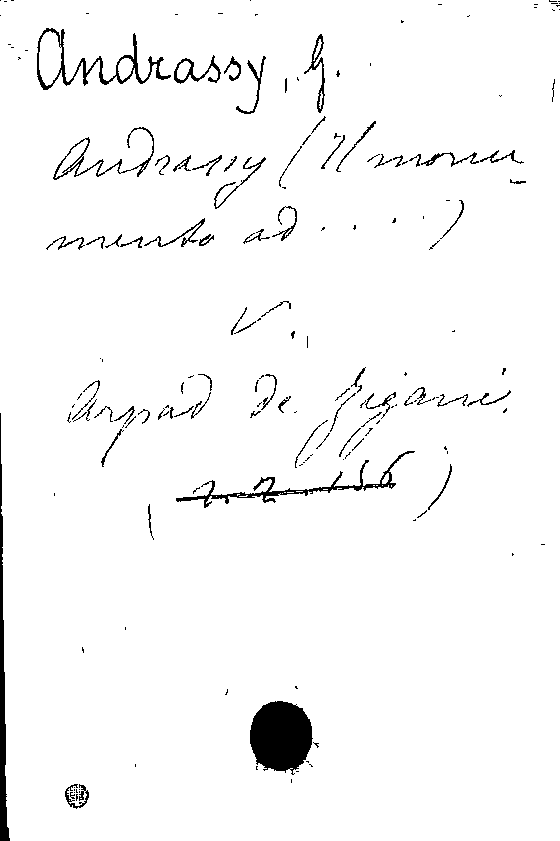 Andrassy, G.
Andrassy (Il monu-
mento ad ....)
V.
Arpad de Zigani.
(2. Z. 156)